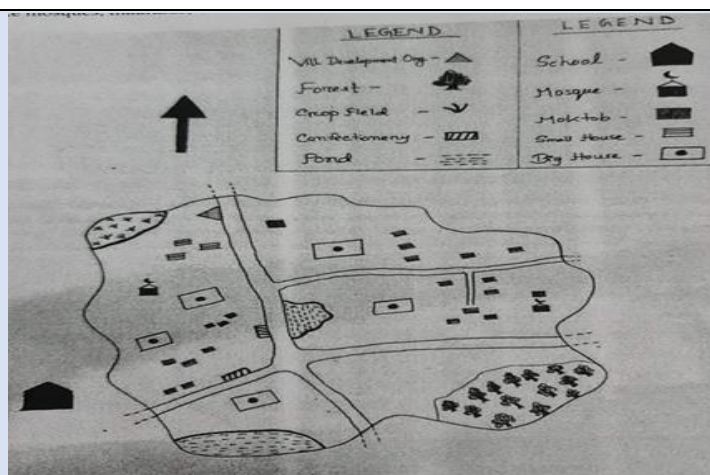 LEGEND
Vill Development Org -
Forrest -
Crop Field -
Confectionery -
Pond -
LEGEND
School -
Mosque -
Moktob -
Small House -
Big House -